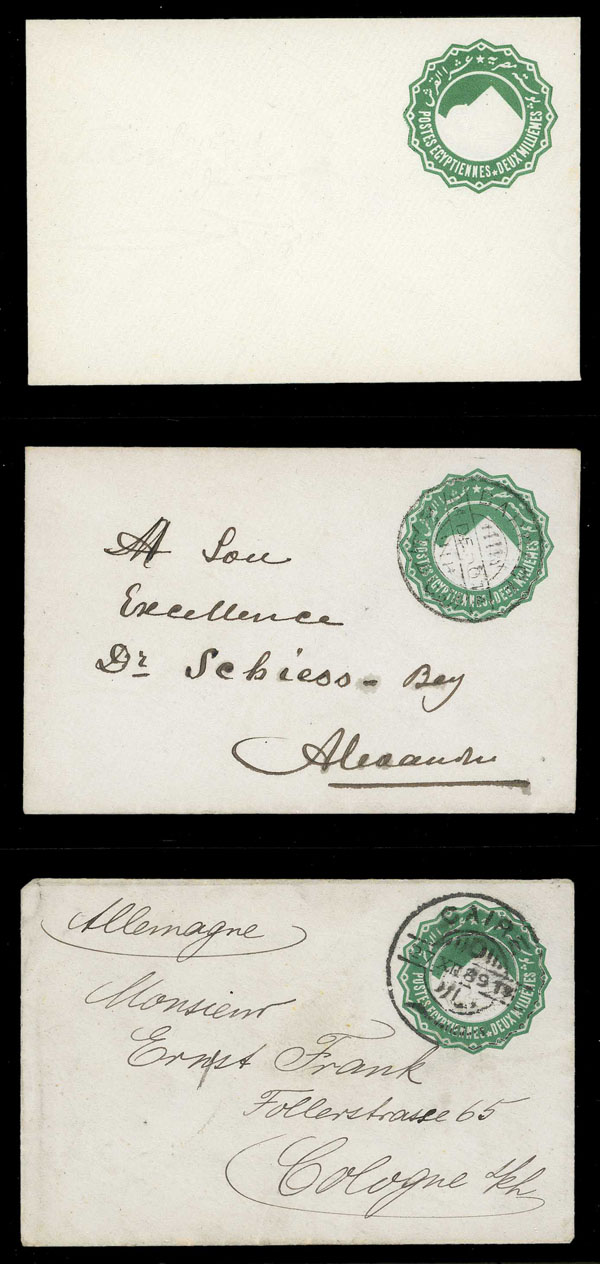 POSTES EGYPTIENNES ★ DEUX MILLIÈMES
A Son
Excellence
Dr Schiess - Bey
Alexandrie
POSTES EGYPTIENNES ★ DEUX MILLIÈMES
Allemagne
CAIRE
Monsieur
Ernst Frank
Follerstrasse 65
Cologne s/Rh
POSTES EGYPTIENNES ★ DEUX MILLIÈMES